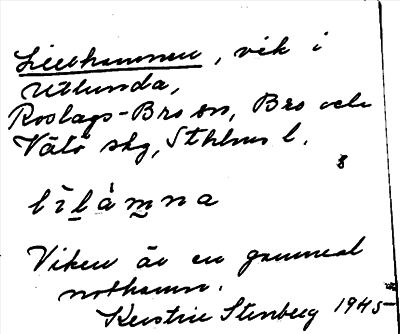 Lillhamnen, vik i
Utlunda,
Roslags-Bro sn, Bro och
Vätö skg, Sthlms l.
Viken är en gammal
nothamn.
Kerstin Stenberg 1945